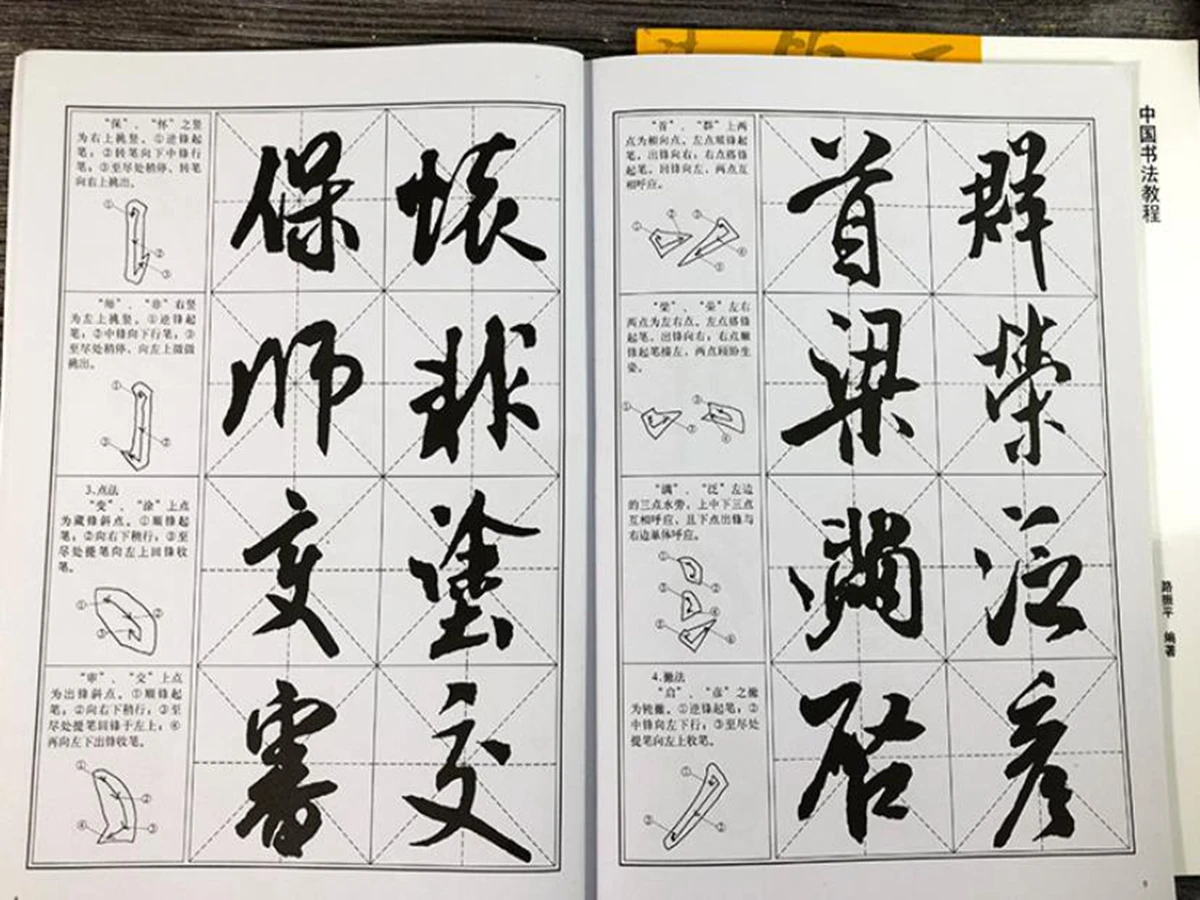 “保”、“怀”之竖
为右上挑竖。①逆锋起
笔；②转笔向下中锋行
笔；③至尽处稍停、转笔
向右上挑出。
①
②
③
保 怀
“师”、“非”右竖
为左上挑竖。①逆锋起
笔；②中锋向下行笔；③
至尽处稍停、向左上微微
挑出。
①
②
③
师 非
3.点法
“变”、“涂”上点
为藏锋斜点。①顺锋起
笔；②向右下稍行；③至
尽处提笔向左上回锋收
笔。
①
②
③
变 塗
“审”、“交”上点
为出锋斜点。①顺锋起
笔；②向右下稍行；③至
尽处提笔回锋于左上；④
再向左下出锋收笔。
①
②
③
④
審 交
“首”、“群”上两
点为相向点。左点顺锋起
笔，出锋向右；右点搭锋
起笔，回锋向左，两点互
相呼应。
①
②
③
④
⑤
首 群
“梁”、“荣”左右
两点为左右点。左点搭锋
起笔、出锋向右；右点顺
锋起笔接左，两点顾盼生
姿。
①
②
③
④
梁 荣
“满”、“泛”左边
的三点水旁，上中下三点
互相呼应，且下点出锋与
右边单体呼应。
①
②
③
④
⑤
⑥
满 泛
4.撇法
“启”、“彦”之撇
为钝撇。①逆锋起笔；②
中锋向左下行；③至尽处
提笔向左上收笔。
①
②
③
启 彦
中国书法教程
路振平 编著